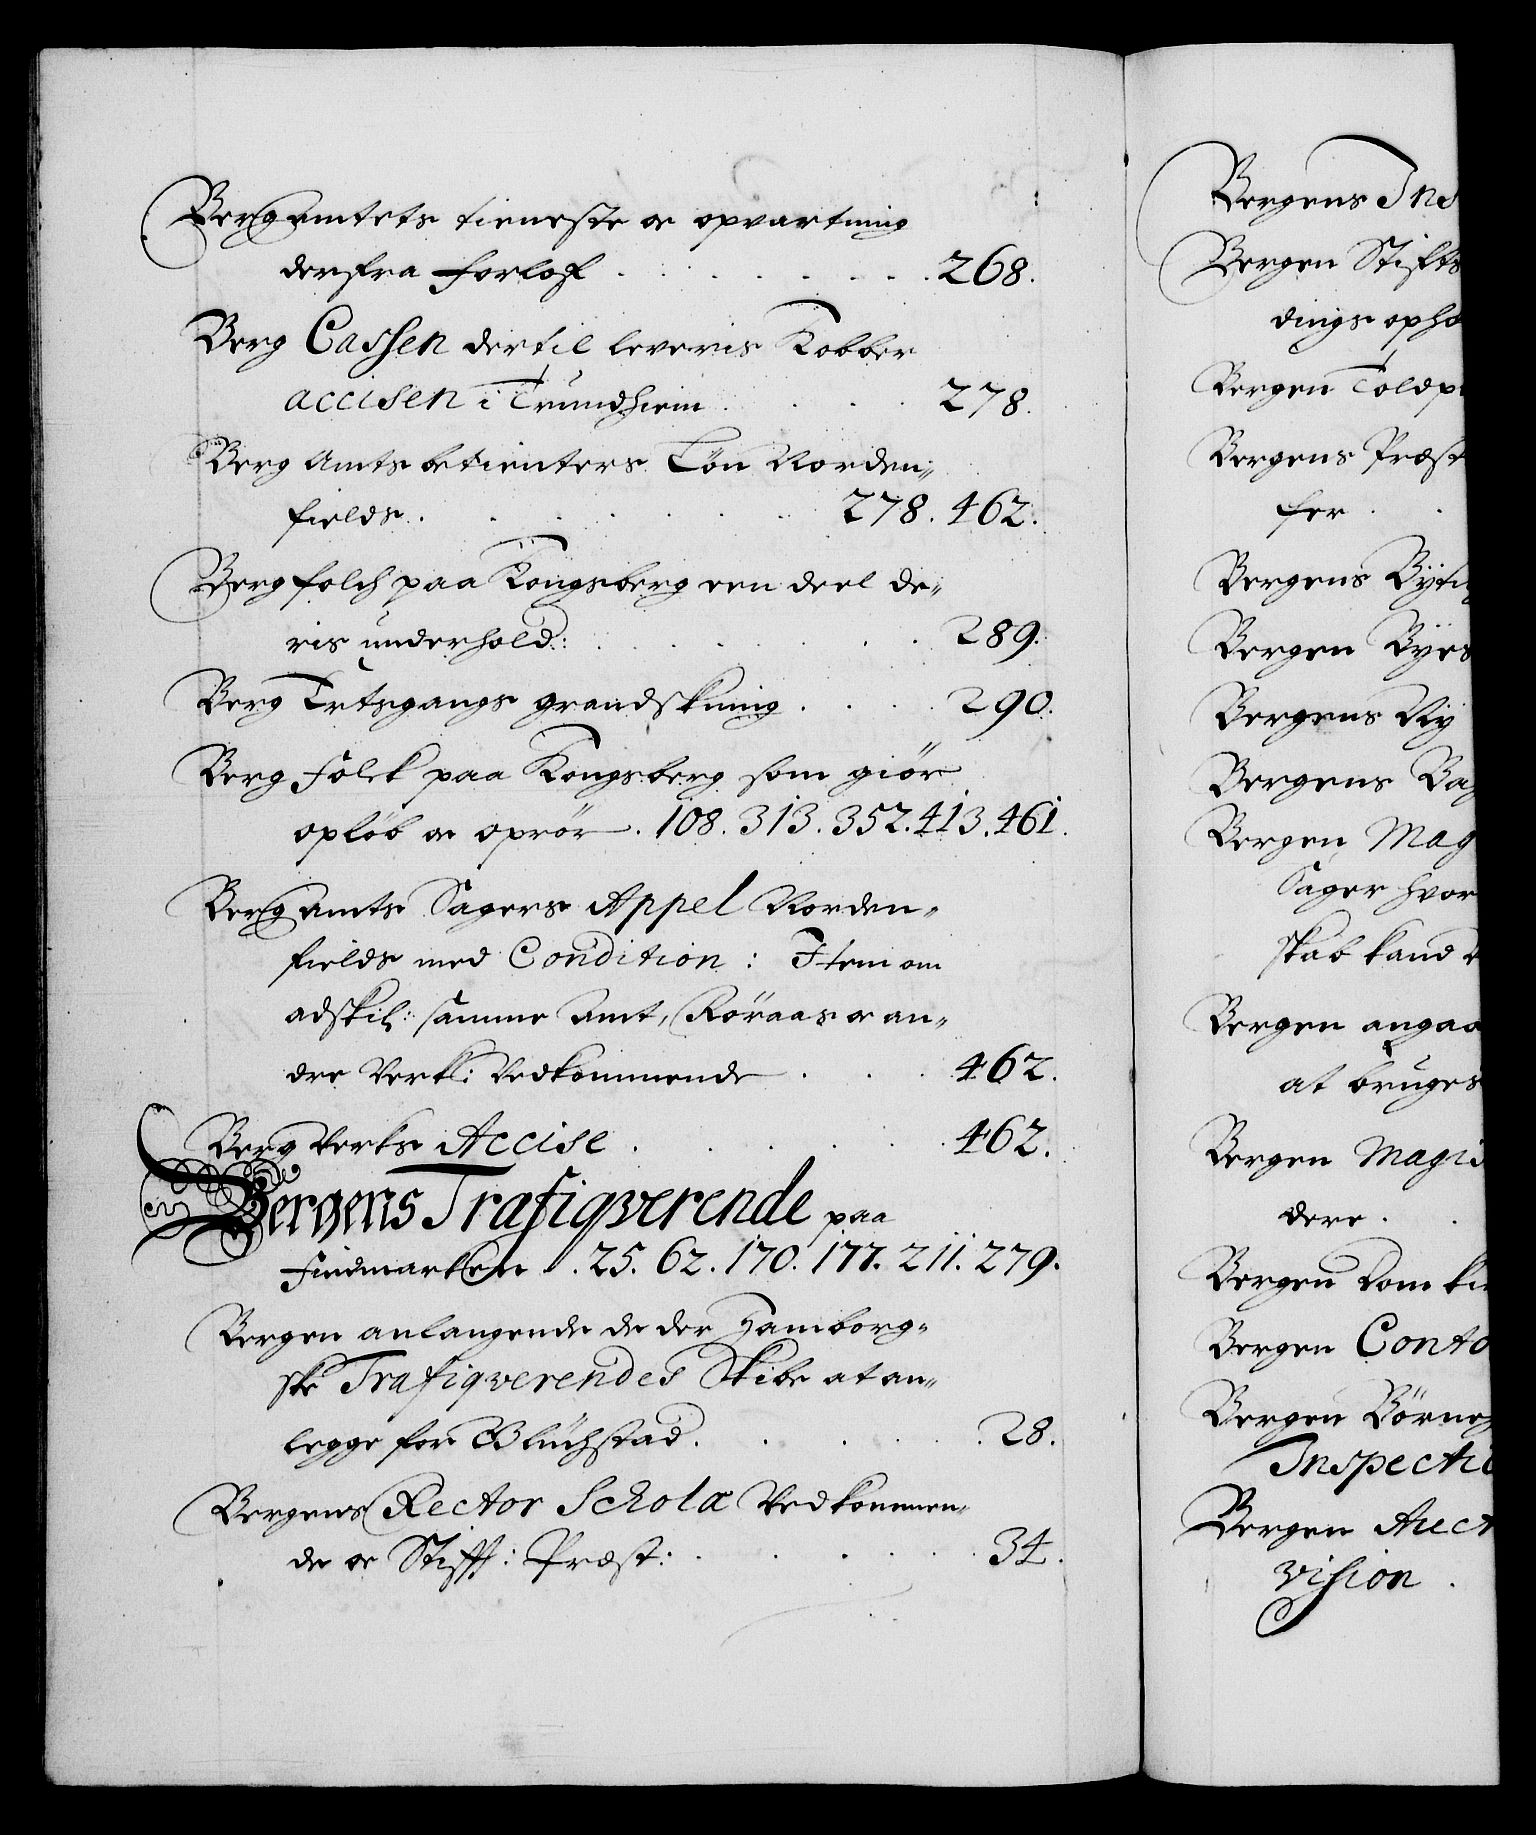 Bergamtets tieneste oc opvartning
derfra forlof . . . . . . . 268.
Berg Cassen dertil leveris Kobber
accisen i Trundhiem . . . . 278.
Berg Amts betienters Lön Norden„
fields . . . . . . . 278. 462.
Bergfolch paa Kongsberg een deel de„
ris underhold: . . . . . . 289.
Berg Irtsgangs grandskning . . . . 290.
Berg Folck paa Kongsberg som giör
oplöb oc oprör . 108. 313. 352. 413. 461.
Bergamts Sagers Appel Norden„
fields med Condition : Item om
adskil: samme Amt, Röraas oc an„
dre Verk: Vedkommende . . . 462.
Berg Verks Accise . . . . . 462.
Bergens Trafiqverende paa
Findmarken . 25. 62. 170. 177. 211. 279.
Bergen anlangende de der Hamborg„
ske Trafiqverendes Skibe at an„
legge for Glückstad . . . . . 28.
Bergens Rector Scholæ Vedkommen„
de oc Stiff: Præst: . . . . . . 34.
Bergens Ins
Bergen Stifts
dings opho
Bergen Toldp
Bergens Præst
fer . .
Bergens Byti
Bergen Byes
Bergens Ny
Bergens Bag
Bergen Mag
Sager hvor
skab kand
Bergen angaa
at bruges
Bergen Magis
dere . .
Bergen Dom ki
Bergen Conto
Bergen Börne
Inspectio
Bergen Auct
vision .